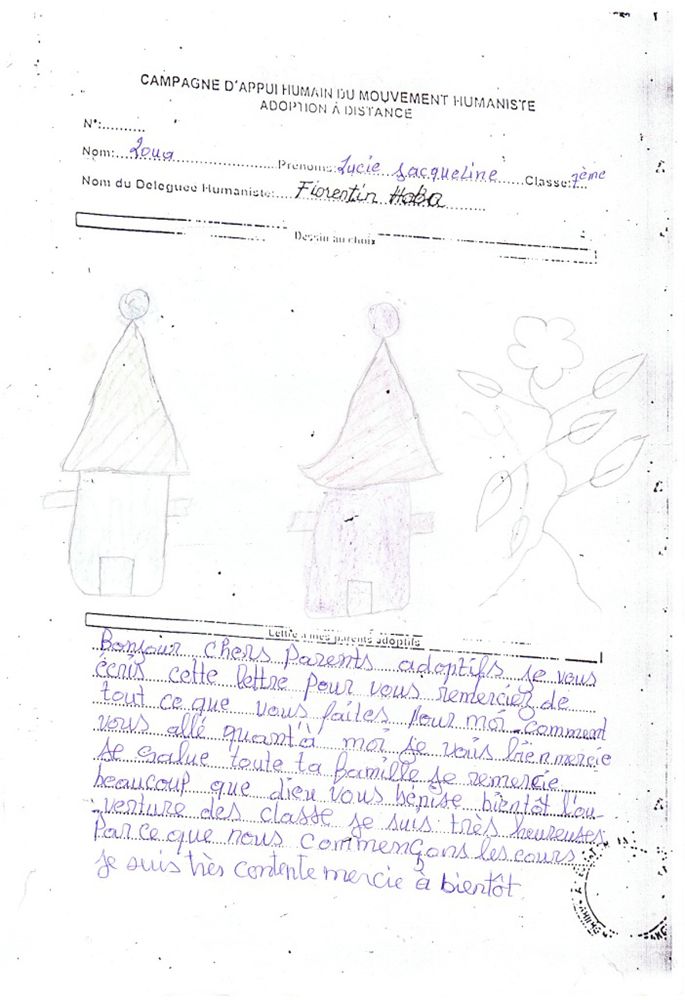 CAMPAGNE D'APPUI HUMAIN DU MOUVEMENT HUMANISTE
ADOPTION À DISTANCE
N°:..........
Nom:...Loua...Prénoms:Lucie Jacqueline...Classe:7ème
Nom du Déléguée Humaniste:...Florentin Haba
Dessin au choix
Lettre à mes parents adoptifs
Bonjour chers Parents adoptifs, je vous
écris cette lettre pour vous remercier de
tout ce que vous faites pour moi. comment
vous allé quant'à moi je vais bien mercie
je salue toute ta famille je remercie
beaucoup que dieu vous bénise bientôt l'ou-
verture des classe je suis très heureuses
Parce que nous commençons les cours
je suis très contente mercie à bientôt.